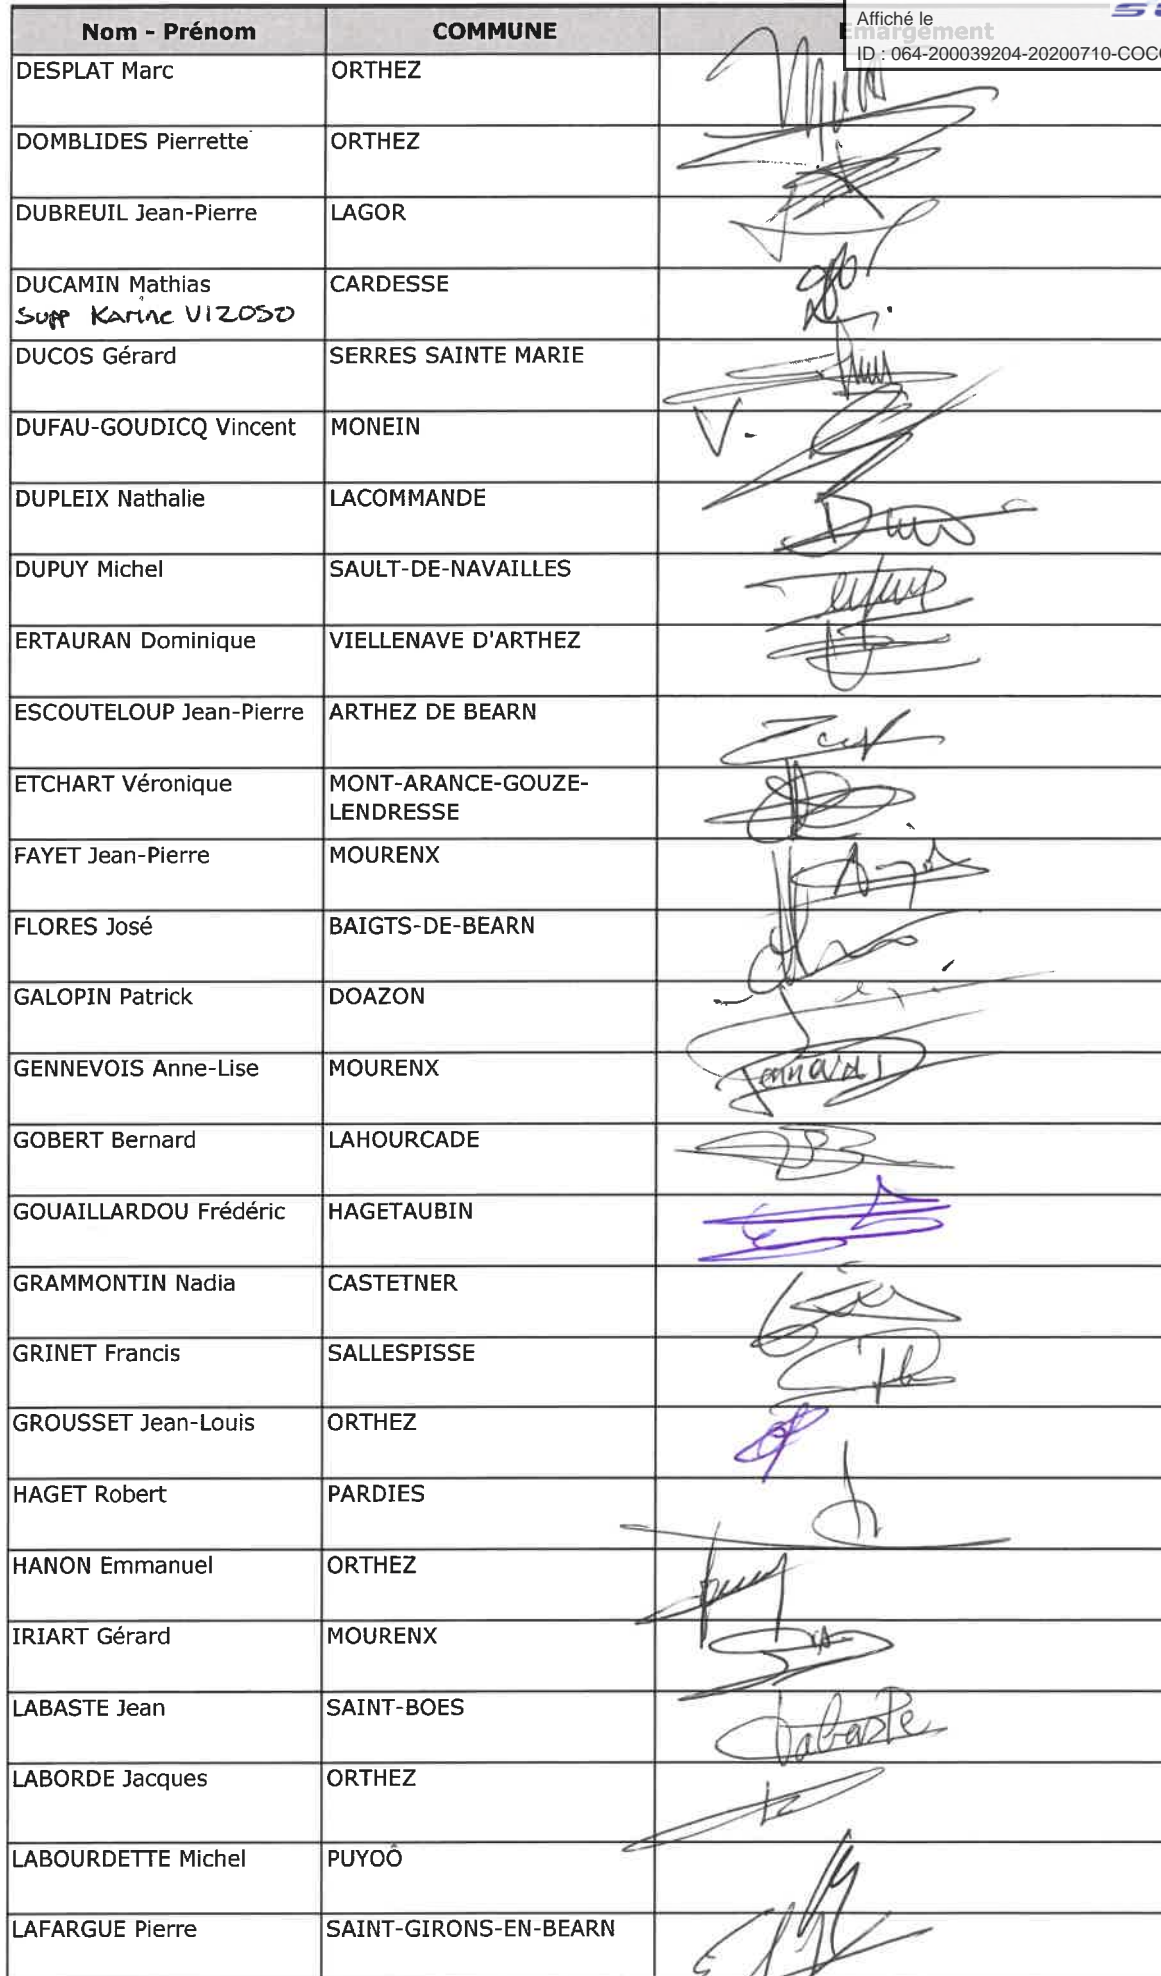 Affiché le
ID : 064-200039204-20200710-COC
Nom - Prénom COMMUNE Emargement
DESPLAT Marc ORTHEZ
DOMBLIDES Pierrette ORTHEZ
DUBREUIL Jean-Pierre LAGOR
DUCAMIN Mathias CARDESSE
Supp Karine VIZOSO
DUCOS Gérard SERRES SAINTE MARIE
DUFAU-GOUDICQ Vincent MONEIN
V.
DUPLEIX Nathalie LACOMMANDE
DUPUY Michel SAULT-DE-NAVAILLES
ERTAURAN Dominique VIELLENAVE D'ARTHEZ
ESCOUTELOUP Jean-Pierre ARTHEZ DE BEARN
ETCHART Véronique MONT-ARANCE-GOUZE-
LENDRESSE
FAYET Jean-Pierre MOURENX
FLORES José BAIGTS-DE-BEARN
GALOPIN Patrick DOAZON
GENNEVOIS Anne-Lise MOURENX
GOBERT Bernard LAHOURCADE
GOUAILLARDOU Frédéric HAGETAUBIN
GRAMMONTIN Nadia CASTETNER
GRINET Francis SALLESPISSE
GROUSSET Jean-Louis ORTHEZ
HAGET Robert PARDIES
HANON Emmanuel ORTHEZ
IRIART Gérard MOURENX
LABASTE Jean SAINT-BOES Labaste
LABORDE Jacques ORTHEZ
LABOURDETTE Michel PUYOÔ
LAFARGUE Pierre SAINT-GIRONS-EN-BEARN